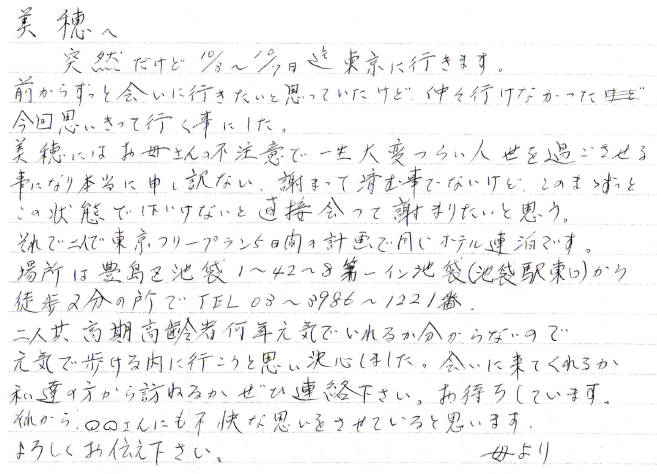 美穂へ
突然だけど10/3～10/7日迄東京に行きます。
前からずっと会いに行きたいと思っていたけど、仲々行けなかった
今回思いきって行く事にした。
美穂にはお母さんの不注意で一生大変つらい人世を過ごさせる
事になり本当に申し訳ない、謝まって済む事でないけど、このまゝずっと
この状態ではいけないと直接会って謝まりたいと思う。
それで二人で東京フリープラン5日間の計画で同じホテル連泊です。
場所は豊島区池袋1～42～8第一イン池袋(池袋駅東口)から
徒歩2分の所でTEL 03～3986～1221番.
二人共高期高齢者何年元気でいれるか分からないので
元気で歩ける内に行こうと思い決心しました。会いに来てくれるか
私達の方から訪ねるかぜひ連絡下さい。お待ちしています。
それから、○○さんにも不快な思いをさせていると思います.
よろしくお伝え下さい。
母より